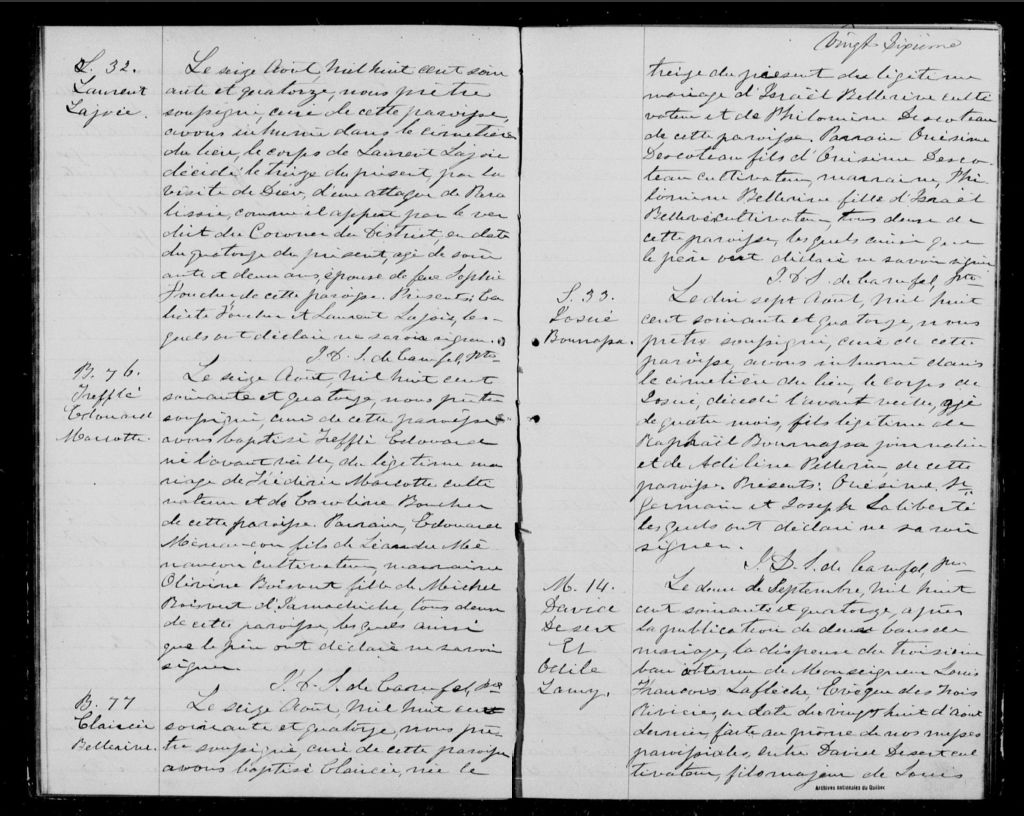 S. 32.
Laurent
Lajoie.
Le seize Août, Mil huit cent soix
ante et quatorze, nous prêtre
soussigné, curé de cette paroisse,
avons inhumé dans le cimetière
du lieu, le corps de Laurent Lajoie
décédé le treize du présent, par la
visite de Dieu, d'une attaque de Para
lissie, comme il appert par le ver
dit du Coroner du District en date
du quatorze du présent, agé de soix
ante et deux ans, épouse de feue Sophie
Foucher de cette paroisse. Présents:
Foucher et Laurent Lajoie, les-
quels ont déclaré ne savoir signer.
J. D. S. de Carufel, Ptre
B. 76.
Trefflé
Edouard
Marcotte.
Le seize Août, Mil huit cent
soixante et quatorze, nous prêtre
soussigné, curé de cette paroisse
avons baptisé Trefflé Edouard
né l'avant veille, du légitime ma
riage de Frédéric Marcotte culti
vateur et de Caroline Boucher
de cette paroisse. Parrain, Edouard
Menancon fils de Léandre Mé
nancon cultivateur, marraine
Olivine Boisvert fille de Michel
Boisvert d'Yamachiche, tous deux
de cette paroisse, lesquels ainsi
que le père ont déclaré ne savoir
signer.
J. D. S. de Carufel, Ptre
B. 77
Claircée
Bellerive.
Le seize Août, Mil huit cent
soixante et quatorze, nous prê
tre soussigné, curé de cette paroisse
avons baptisé Claircée, née le
Vingt Sixième
treize du présent du légitime
mariage d'Israël Bellerive culti
vateur et de Philomène Descoteau
de cette paroisse. Parrain Onésime
Descoteau fils d'Onésime Desco-
teau cultivateur, marraine, Phi
lomène Bellerive fille d'Israël
Bellerive cultivateur, tous deux de
cette paroisse, lesquels ainsi que
le père ont déclaré ne savoir signer
J. D. S. de Carufel, Ptre
S. 33.
Josué
Bournassa.
Le dix sept Août, Mil huit
cent soixante et quatorze, nous
prêtre soussigné, curé de cette
paroisse, avons inhumé dans
le cimetière du lieu, le corps de
Josué, décédé l'avant veille, agé
de quatre mois, fils légitime de
Raphaël Bournassa journalier
et de Adeline Pellerin de cette
paroisse. Présents: Onésime St
Germain et Joseph Laliberté
lesquels ont déclaré ne savoir
signer.
J. D. S. de Carufel, Ptre
M. 14.
David
Desert
Et
Odile
Lamy.
Le deux de Septembre, Mil huit
cent soixante et quatorze, après
la publication de deux bans de
mariage, la dispense du troisième
ban obtenue de Monseigneur Louis
Francois Laflèche, Evêque des Trois
Rivières, en date du vingt huit d'Août
dernier, faite au prône de nos messes
paroissiales, entre David Desert cul
tivateur, fils majeur de Louis
Archives nationales du Québec